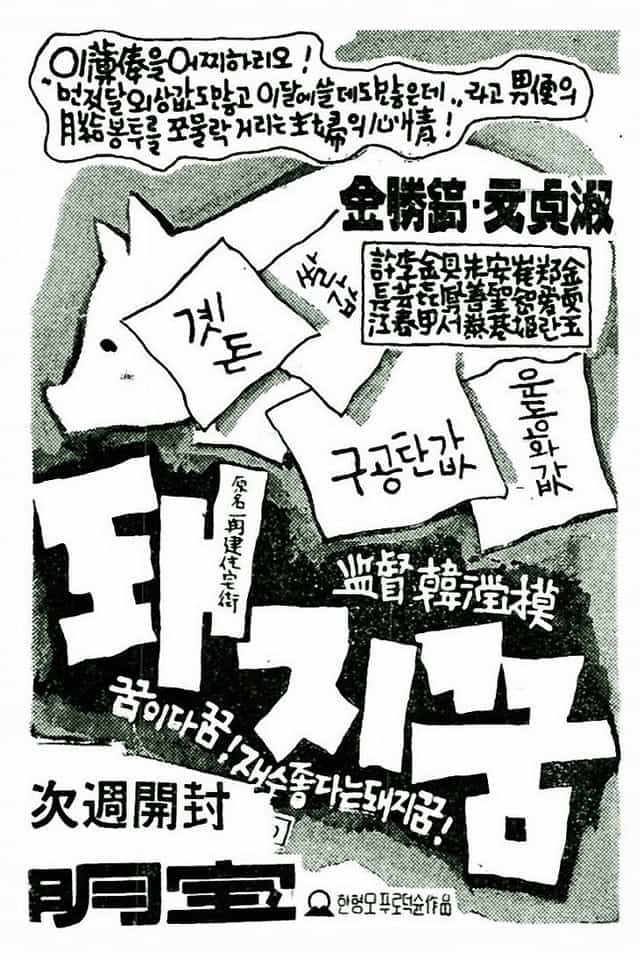 이薄俸을 어찌하리오!
"먼젓달 외상값도 많고 이달에 쓸데도 많은데„ 라고 男便의
月給봉투를 쪼물락 거리는 主婦의 心情!
金勝鎬·文貞淑
許長江
李芸春
具鳳書
朱善泰
安聖基
崔智姬
郑爱란
쌀값
곗돈
구공탄값
운동화값
原名 再建住宅街
监督 韓瀅模
돼지꿈
꿈이다 꿈! 재수좋다는 돼지꿈!
次週開封
明宝
한형모푸로덕슌作品